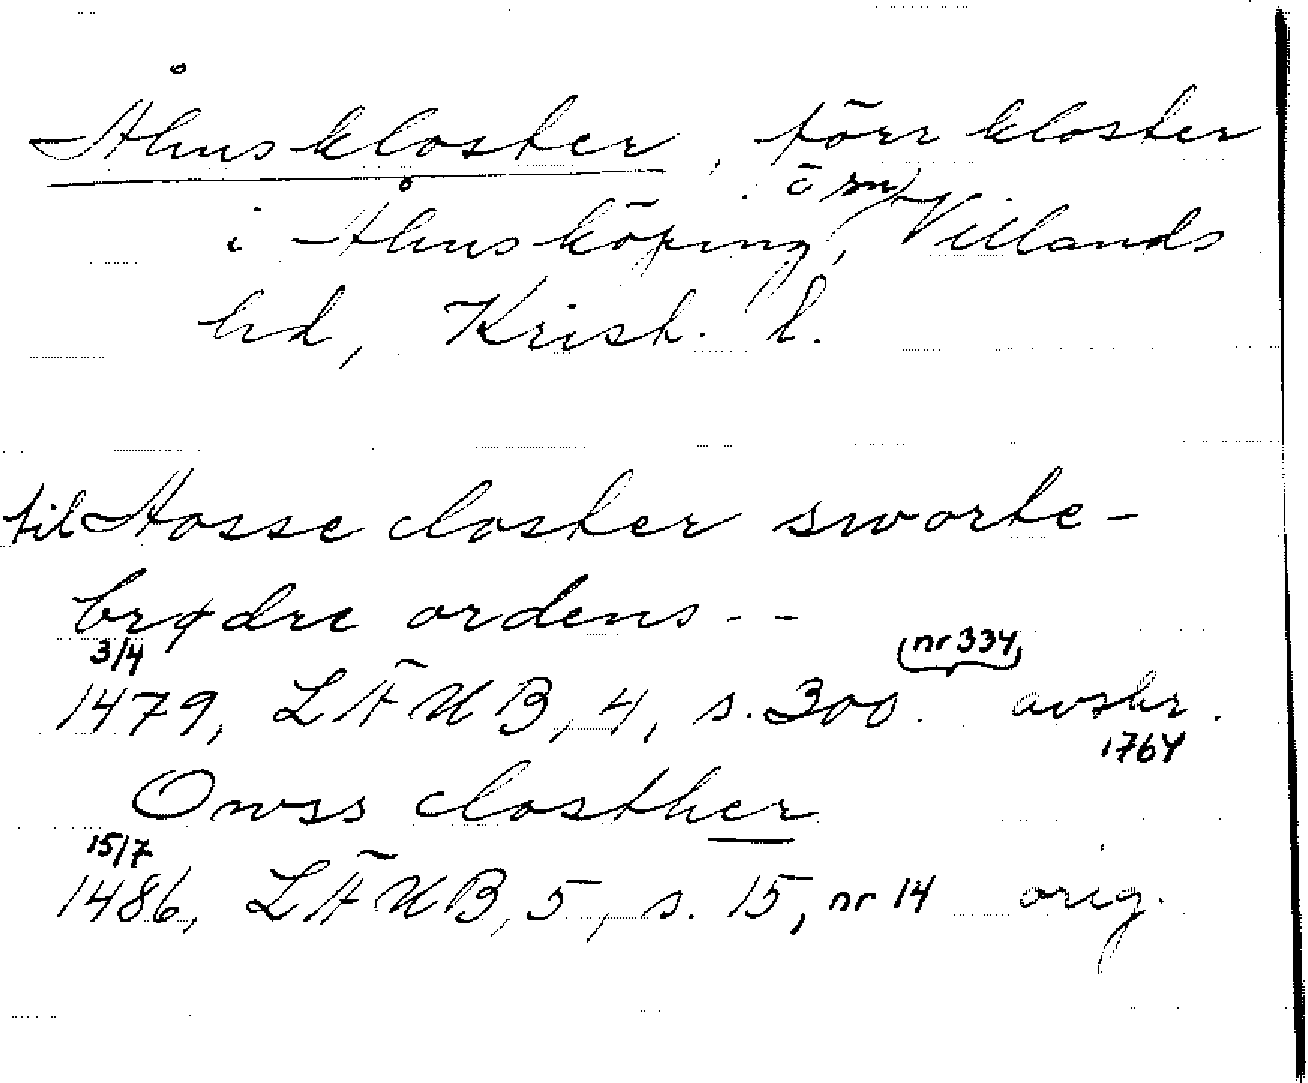 Åhus kloster, förr kloster
i Åhus köping, ö sn, Villands
hd, Krist. l.
til Aosse closter sworte-
brødre ordens - -
3/4 1479, LÄUB, 4, s. 300 (nr 334) avskr. 1764
Owss closther
15/7 1486, LÄUB, 5, s. 15, nr 14 orig.